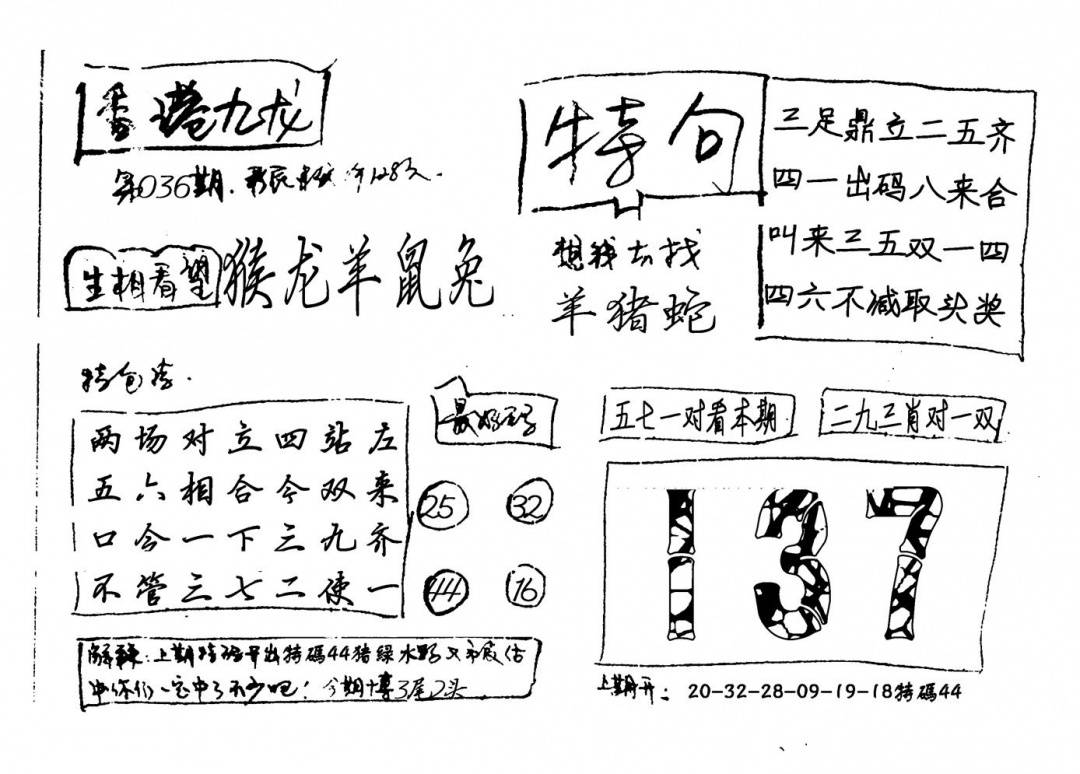 香港九龙
第036期.
生相看望
猴龙羊鼠兔
特句
想我去找
羊猪蛇
三足鼎立二五齐
四一出码八来合
叫来三五双一四
四六不减取头奖
特包
两场对立四站左
五六相合今双来
口令一下三九齐
不管三七二使一
25 32
44 16
五七一对看本期
二九三肖对一双
137
解释:上期特码开出特碼44猪绿水
中你们一定中了不少吧!今期博3尾2头
上期开: 20-32-28-09-19-18特碼44